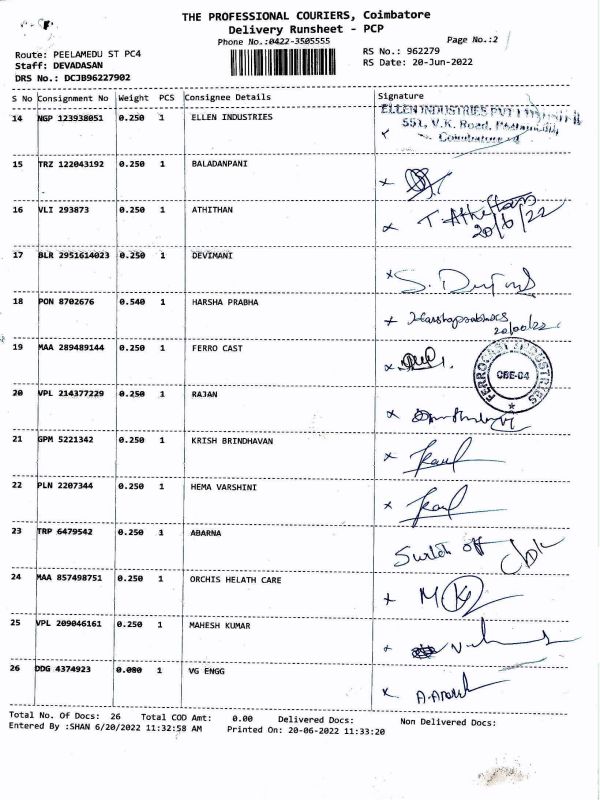 THE PROFESSIONAL COURIERS, Coimbatore
Delivery Runsheet - PCP
Phone No.:0422-3505555
Page No.:2
Route: PEELAMEDU ST PC4
Staff: DEVADASAN
DRS No.: DCJB96227902
RS No.: 962279
RS Date: 20-Jun-2022
S No Consignment No Weight PCS Consignee Details Signature
14 NGP 123938051 0.250 1 ELLEN INDUSTRIES
ELLEN INDUSTRIES PVT
551, V.K. Road,
Coimbatore
15 TRZ 122043192 0.250 1 BALADANPANI x
16 VLI 293873 0.250 1 ATHITHAN x
20/6/22
17 BLR 2951614023 0.250 1 DEVIMANI x S.
18 PON 8702676 0.540 1 HARSHA PRABHA x Harshaprabha
19 MAA 289489144 0.250 1 FERRO CAST x
INDUSTRIES
CBE-04
20 VPL 214377229 0.250 1 RAJAN x
21 GPM 5221342 0.250 1 KRISH BRINDHAVAN x
22 PLN 2207344 0.250 1 HEMA VARSHINI x
23 TRP 6479542 0.250 1 ABARNA Switch off
24 MAA 857498751 0.250 1 ORCHIS HELATH CARE x
25 VPL 209046161 0.250 1 MAHESH KUMAR x
26 DDG 4374923 0.080 1 VG ENGG x
Total No. Of Docs: 26 Total COD Amt: 0.00 Delivered Docs: Non Delivered Docs:
Entered By :SHAN 6/20/2022 11:32:58 AM Printed On: 20-06-2022 11:33:20